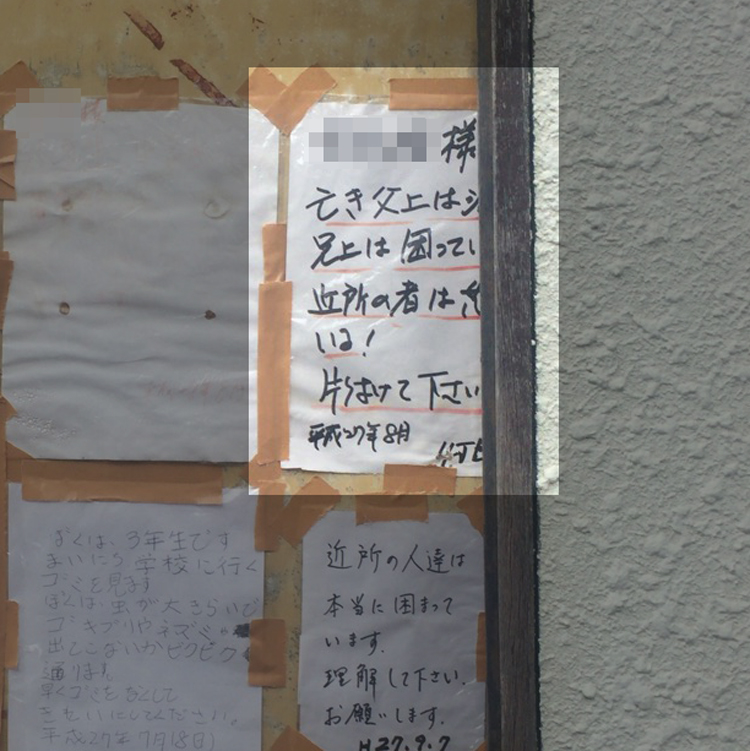 様
亡き父上は
兄上は困ってい
近所の者は
いる!
片付けて下さい
平成27年8月
ぼくは、3年生です
まいにち学校に行く
ゴミを見ます
ぼくは、虫が大きらいで
ゴキブリやネズミや
出てこないかビクビク
通ります
早くゴミをなくして
きれいにしてください。
平成27年7月18日
近所の人達は
本当に困まって
います。
理解して下さい。
お願いします。
H27.9.7